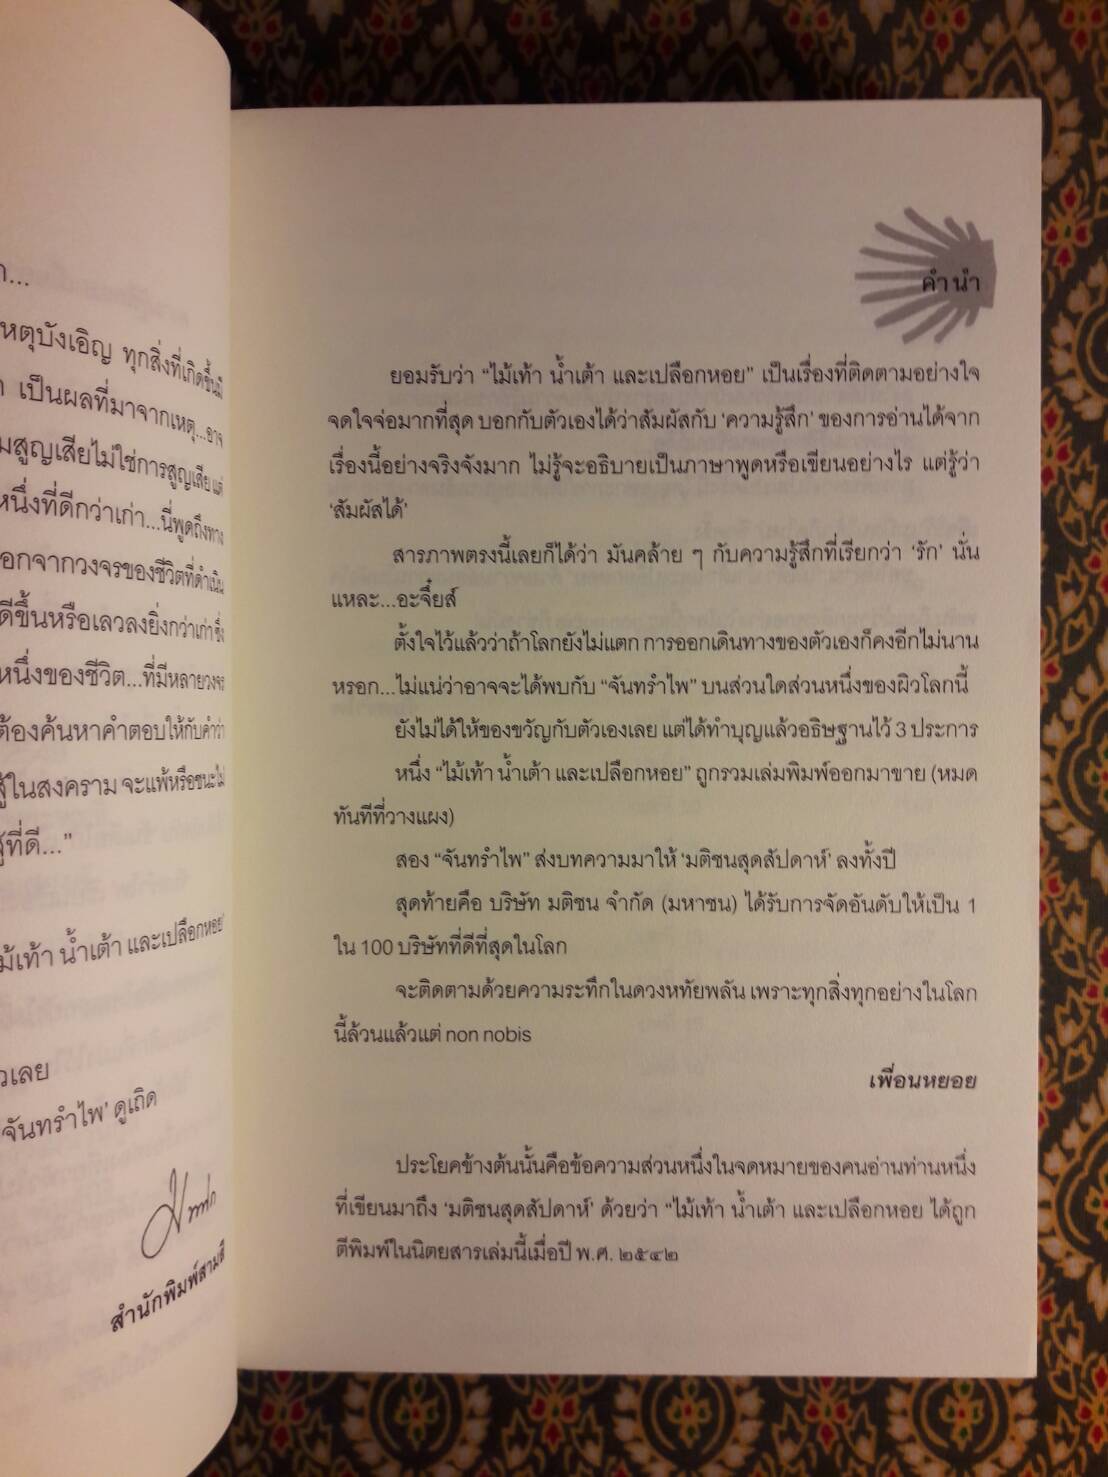 า...
หตุบังเอิญ ทุกสิ่งที่เกิดขึ้นมี
เป็นผลที่มาจากเหตุ...อาจ
มสูญเสียไม่ใช่การสูญเสีย แต่
หนึ่งที่ดีกว่าเก่า...นี่พูดถึงทาง
อกจากวงจรของชีวิตที่ดำเนิน
ดีขึ้นหรือเลวลงยิ่งกว่าเก่า ซึ่ง
หนึ่งของชีวิต...ที่มีหลายวงจร
ต้องค้นหาคำตอบให้กับคำว่า
สู้ในสงคราม จะแพ้หรือชนะไม่
สู้ที่ดี...”
ม้เท้า น้ำเต้า และเปลือกหอย’
วเลย
จันทรำไพ’ ดูเถิด
สำนักพิมพ์สามสี
คำนำ
ยอมรับว่า “ไม้เท้า น้ำเต้า และเปลือกหอย” เป็นเรื่องที่ติดตามอย่างใจ
จดใจจ่อมากที่สุด บอกกับตัวเองได้ว่าสัมผัสกับ ‘ความรู้สึก’ ของการอ่านได้จาก
เรื่องนี้อย่างจริงจังมาก ไม่รู้จะอธิบายเป็นภาษาพูดหรือเขียนอย่างไร แต่รู้ว่า
‘สัมผัสได้’
สารภาพตรงนี้เลยก็ได้ว่า มันคล้าย ๆ กับความรู้สึกที่เรียกว่า ‘รัก’ นั่น
แหละ...อะจึ๋ยส์
ตั้งใจไว้แล้วว่าถ้าโลกยังไม่แตก การออกเดินทางของตัวเองก็คงอีกไม่นาน
หรอก...ไม่แน่ว่าอาจจะได้พบกับ “จันทรำไพ” บนส่วนใดส่วนหนึ่งของผิวโลกนี้
ยังไม่ได้ให้ของขวัญกับตัวเองเลย แต่ได้ทำบุญแล้วอธิษฐานไว้ 3 ประการ
หนึ่ง “ไม้เท้า น้ำเต้า และเปลือกหอย” ถูกรวมเล่มพิมพ์ออกมาขาย (หมด
ทันทีที่วางแผง)
สอง “จันทรำไพ” ส่งบทความมาให้ ‘มติชนสุดสัปดาห์’ ลงทั้งปี
สุดท้ายคือ บริษัท มติชน จำกัด (มหาชน) ได้รับการจัดอันดับให้เป็น 1
ใน 100 บริษัทที่ดีที่สุดในโลก
จะติดตามด้วยความระทึกในดวงหทัยพลัน เพราะทุกสิ่งทุกอย่างในโลก
นี้ล้วนแล้วแต่ non nobis
เพื่อนหยอย
ประโยคข้างต้นนั้นคือข้อความส่วนหนึ่งในจดหมายของคนอ่านท่านหนึ่ง
ที่เขียนมาถึง ‘มติชนสุดสัปดาห์’ ด้วยว่า “ไม้เท้า น้ำเต้า และเปลือกหอย ได้ถูก
ตีพิมพ์ในนิตยสารเล่มนี้เมื่อปี พ.ศ. ๒๕๔๒